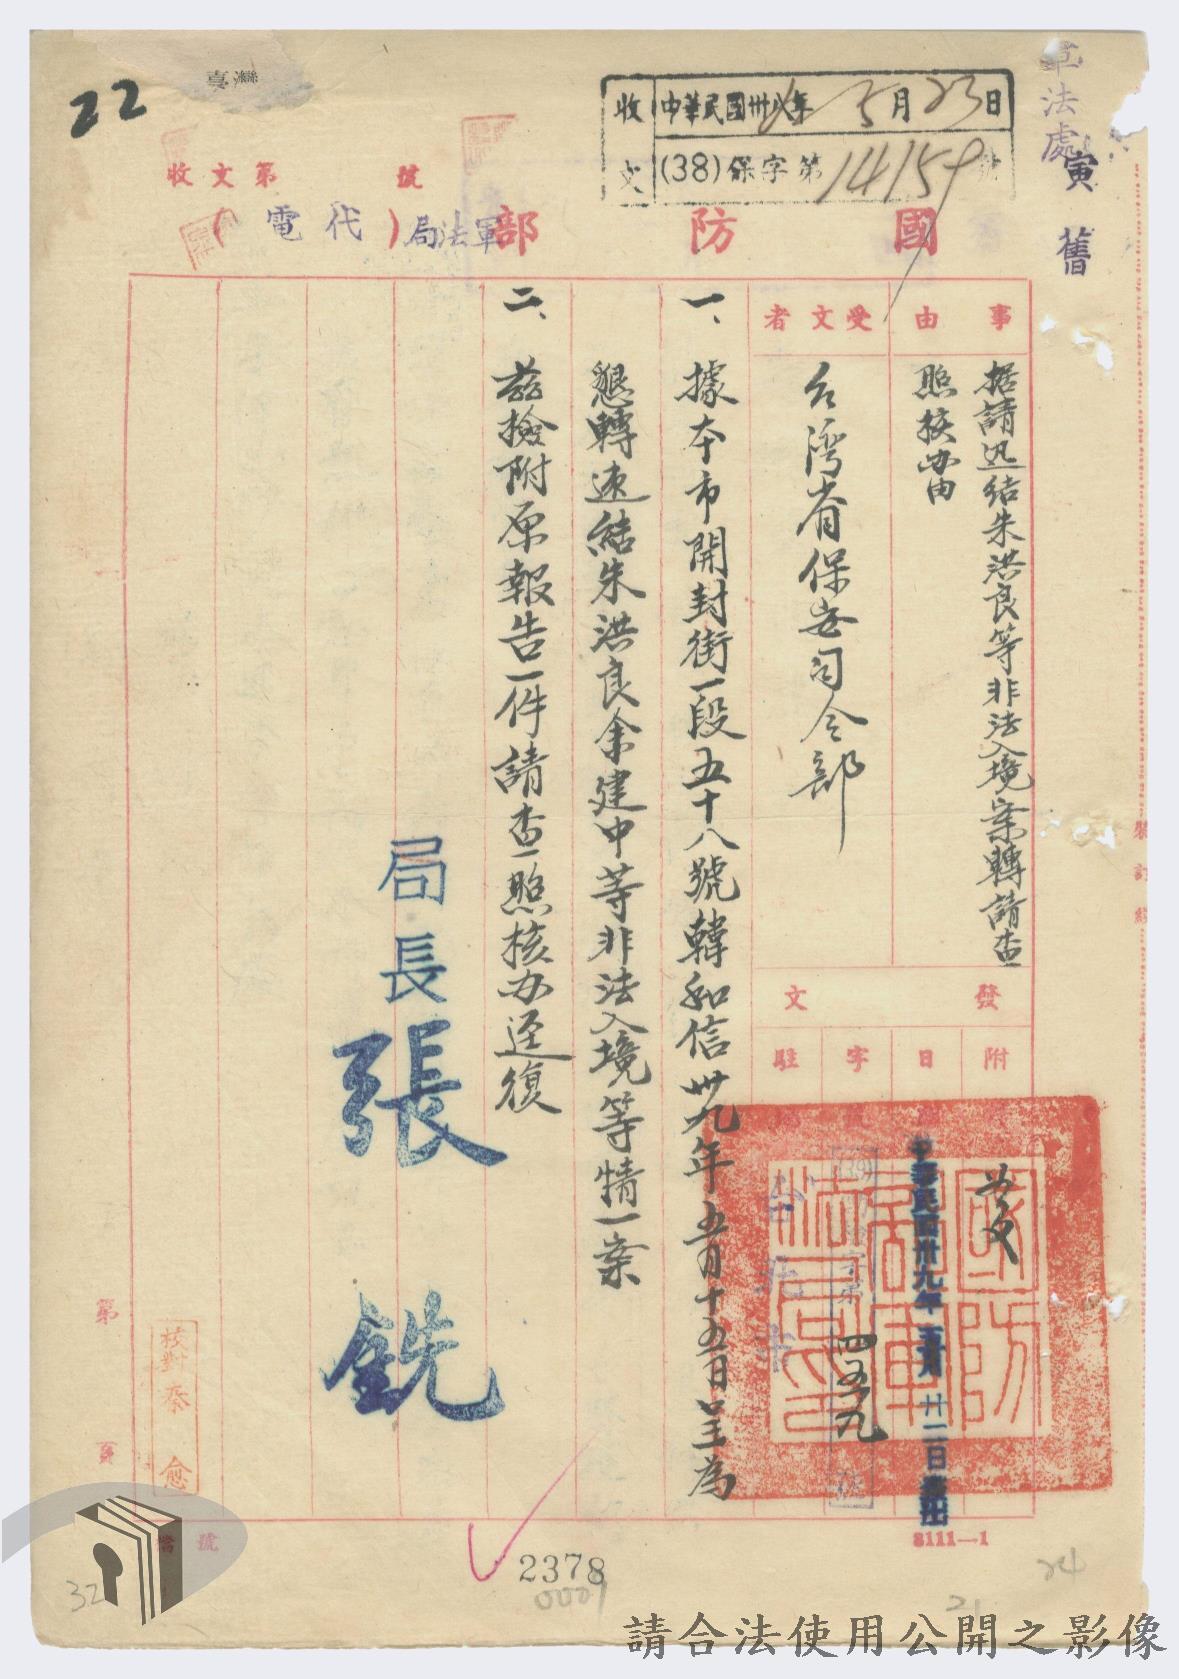 22
臺灣
收文
中華民國卅八年5月23日
(38)保字第14159號
軍法處
寅 舊
收文第 號
國防部軍法局(代電)
事由
据請迅結朱洪良等非法入境案轉請查
照核办由
受文者
台湾省保安司令部
發文
附
日
字
駐
中華民國卅九年五月廿二日發出
四五九
國防部軍法局印
一、據本市開封街一段五十八號韓和信卅九年五月十五日呈為
懇轉速結朱洪良余建中等非法入境等情一案
二、茲檢附原報告一件請查照核办逕復
局長張 銑
校對
第 頁
檔號
裝訂線
8111—1
2378
0009
32
21
24
請合法使用公開之影像